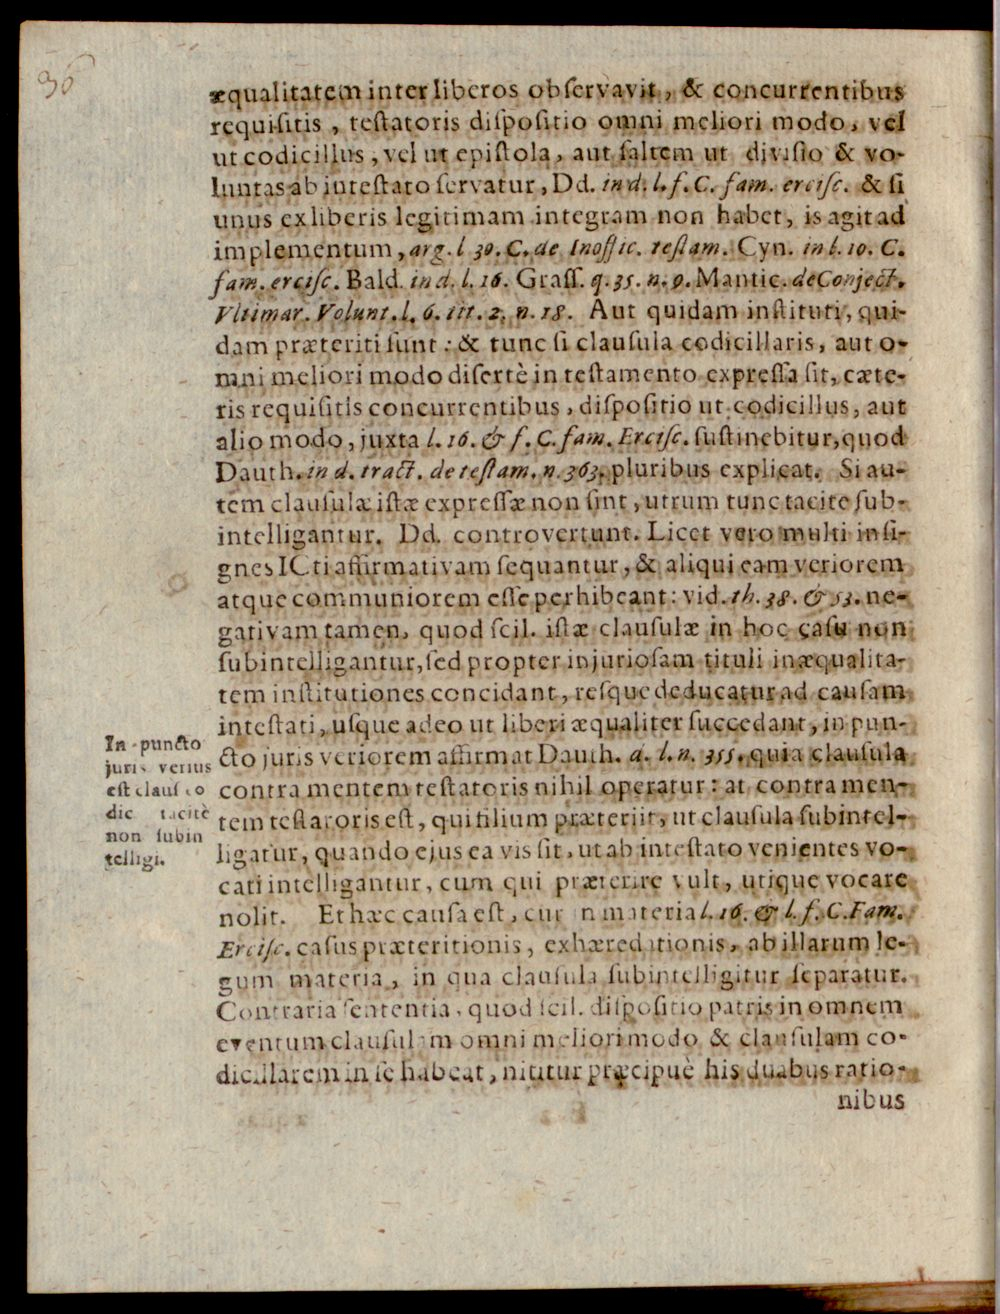 36
æqualitatem inter liberos obſervavit, & concurrentibus
requiſitis, teſtatoris diſpoſitio omni meliori modo, vel
ut codicillus, vel ut epiſtola, aut ſaltem ut diviſio & vo-
luntas ab inteſtato ſervatur, Dd. in d. l. f. C. fam. erciſc. & ſi
unus ex liberis legitimam integram non habet, is agit ad
implementum, arg. l 30. C. de Inoffic. teſtam. Cyn. in l. 10. C.
fam. erciſc. Bald. in d. l. 16. Graſſ. q. 35. n. 9. Mantic. de Conject.
Vltimar. Volunt. l. 6. tit. 2. n. 18. Aut quidam inſtituti, qui-
dam præteriti ſunt: & tunc ſi clauſula codicillaris, aut o-
mni meliori modo diſertè in teſtamento expreſſa ſit, cæte-
ris requiſitis concurrentibus, diſpoſitio ut codicillus, aut
alio modo, juxta l. 16. & f. C. fam. Erciſc. ſuſtinebitur, quod
Dauth. in d. tract. de teſtam. n. 363. pluribus explicat. Si au-
tem clauſulæ iſtæ expreſſæ non ſint, utrum tunc tacite ſub-
intelligantur. Dd. controvertunt. Licet vero multi inſi-
gnes ICti affirmativam ſequantur, & aliqui eam veriorem
atque communiorem eſſe perhibeant: vid. th. 38. & 53. ne-
gativam tamen, quod ſcil. iſtæ clauſulæ in hoc caſu non
ſubintelligantur, ſed propter injurioſam tituli inæqualita-
tem inſtitutiones concidant, reſque deducatur ad cauſam
inteſtati, uſque adeo ut liberi æqualiter ſuccedant, in pun-
cto juris veriorem affirmat Dauth. d. l. n. 355. quia clauſula
contra mentem teſtatoris nihil operatur: at contra men-
tem teſtatoris eſt, qui filium præteriit, ut clauſula ſubintel-
ligatur, quando ejus ea vis ſit, ut ab inteſtato venientes vo-
cati intelligantur, cum qui præterire vult, utique vocare
nolit. Et hæc cauſa eſt, cur in materia l. 16. & l. f. C. Fam.
Erciſc. caſus præteritionis, exhæreditionis, ab illarum le-
gum materia, in qua clauſula ſubintelligitur ſeparatur.
Contraria ſententia, quod ſcil. diſpoſitio patris in omnem
eventum clauſulam omni meliori modo & clauſulam co-
dicillarem in ſe habeat, nititur præcipuè his duabus ratio-
nibus
In puncto
juris verius
eſt clauſ co
dic tacitè
non ſubin
telligi.